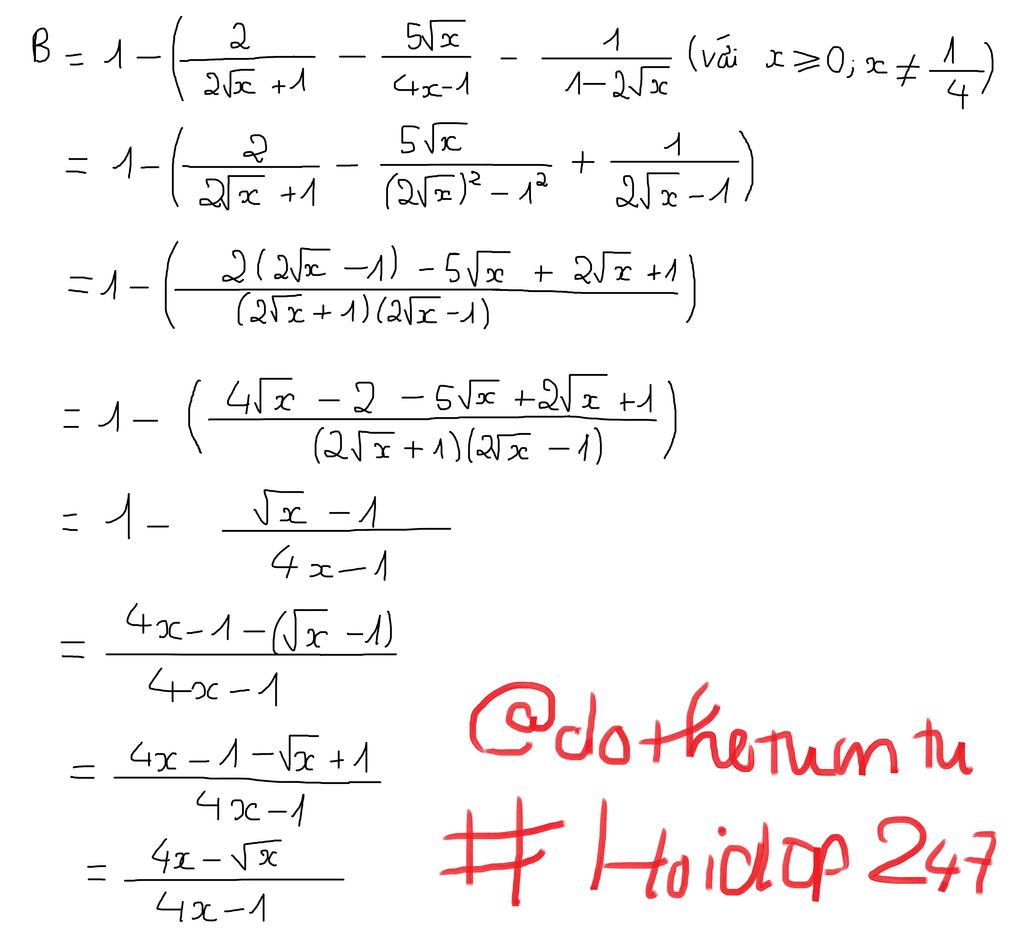 B = 1 - ( 2/(2√x + 1) - 5√x/(4x-1) - 1/(1-2√x) (vái x ⩾ 0; x ≠ 1/4)
= 1 - ( 2/(2√x + 1) - 5√x/((2√x)² - 1²) + 1/(2√x - 1) )
= 1 - ( (2(2√x - 1) - 5√x + 2√x + 1)/((2√x + 1)(2√x - 1)) )
= 1 - ( (4√x - 2 - 5√x + 2√x + 1)/((2√x + 1)(2√x - 1)) )
= 1 - (√x - 1)/(4x - 1)
= (4x - 1 - (√x - 1))/(4x - 1)
= (4x - 1 - √x + 1)/(4x - 1)
= (4x - √x)/(4x - 1)
@dotheTumtu
# Hoidap247